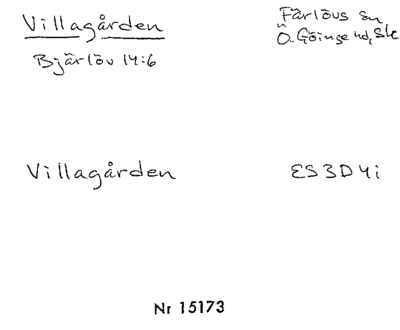 Villagården
Färlövs sn
Ö. Göinge hd, Sk
Bjärlöv 14:6
Villagården
ES3D4i
Nr 15173